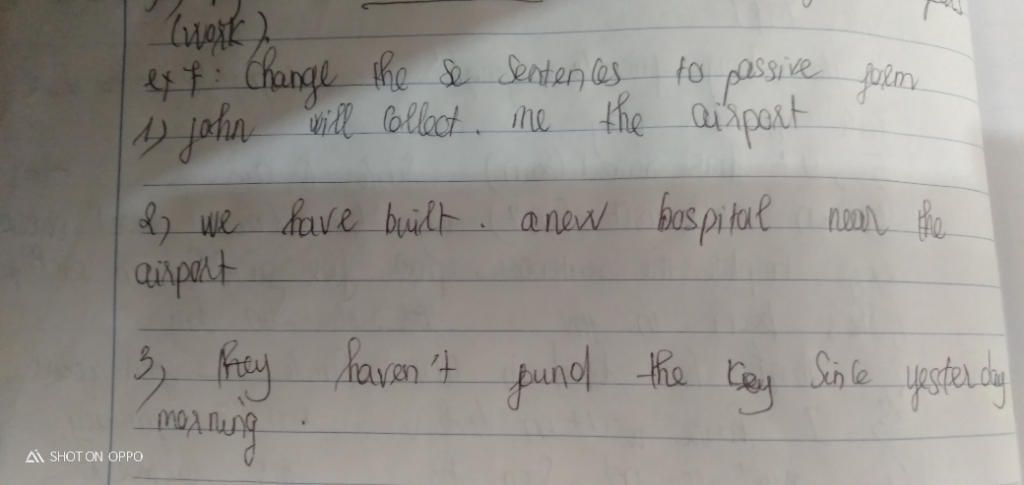 (work).
ex 7: Change the se sentences to passive form
1) john will collect. me the airport
2) we have built. a new hospital near the
airport
3) they haven't found the key since yesterday
morning.
SHOT ON OPPO